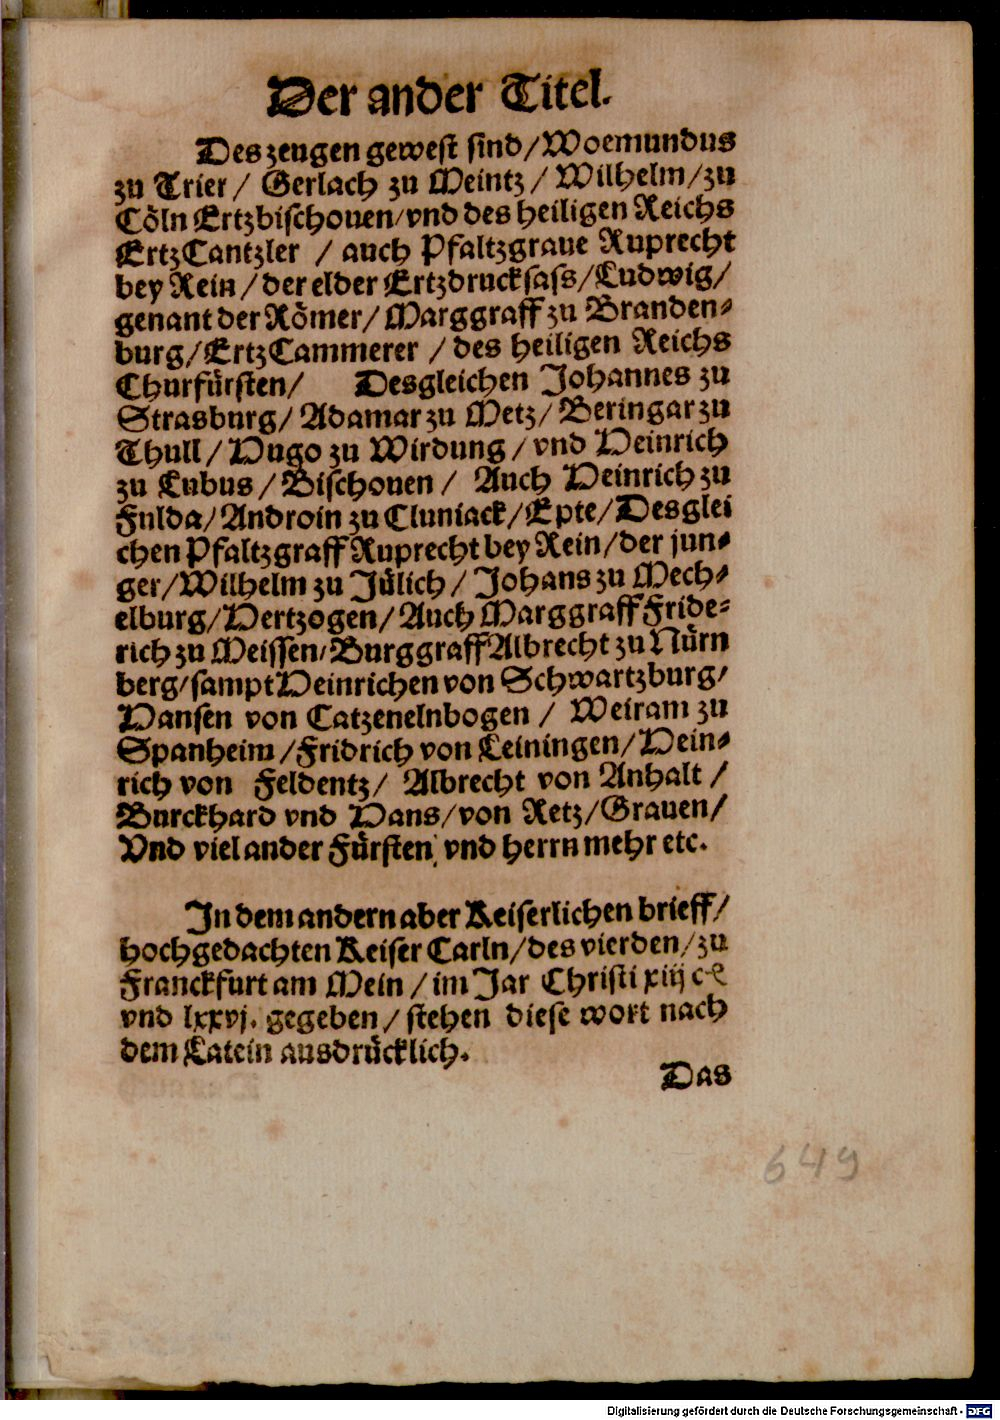 Der ander Titel.
Des zeugen gewest sind/Woemundus
zu Trier/ Gerlach zu Meintz/ Wilhelm/zu
Cöln Ertzbischouen/vnd des heiligen Reichs
ErtzCantzler / auch Pfaltzgraue Ruprecht
bey Rein/der elder Ertzdrucksass/Ludwig/
genant der Römer/ Marggraff zu Branden-
burg/ErtzCammerer / des heiligen Reichs
Churfürsten/ Desgleichen Johannes zu
Strasburg/ Adamar zu Metz/ Beringar zu
Thull/ Hugo zu Wirdung/ vnd Heinrich
zu Lubus/ Bischouen/ Auch Heinrich zu
Fulda/Androin zu Cluniack/Epte/Desglei
chen Pfaltzgraff Ruprecht bey Rein/der jun-
ger/Wilhelm zu Jülich/ Johans zu Mech-
elburg/Hertzogen/ Auch Marggraff Fride-
rich zu Meissen/Burggraff Albrecht zu Nürn
berg/sampt Heinrichen von Schwartzburg/
Hansen von Catzenelnbogen/ Weiram zu
Spanheim/Fridrich von Leiningen/Hein-
rich von Feldentz/ Albrecht von Anhalt/
Burckhard vnd Hans/von Retz/Grauen/
Vnd viel ander Fürsten vnd herrn mehr etc.
In dem andern aber Keiserlichen brieff/
hochgedachten Keiser Carln/des vierden/zu
Franckfurt am Mein/im Jar Christi xiij cꝛ
vnd lxxvj. gegeben/stehen diese wort nach
dem Latein ausdrücklich.
Das
649
Digitalisierung gefördert durch die Deutsche Forschungsgemeinschaft - DFG